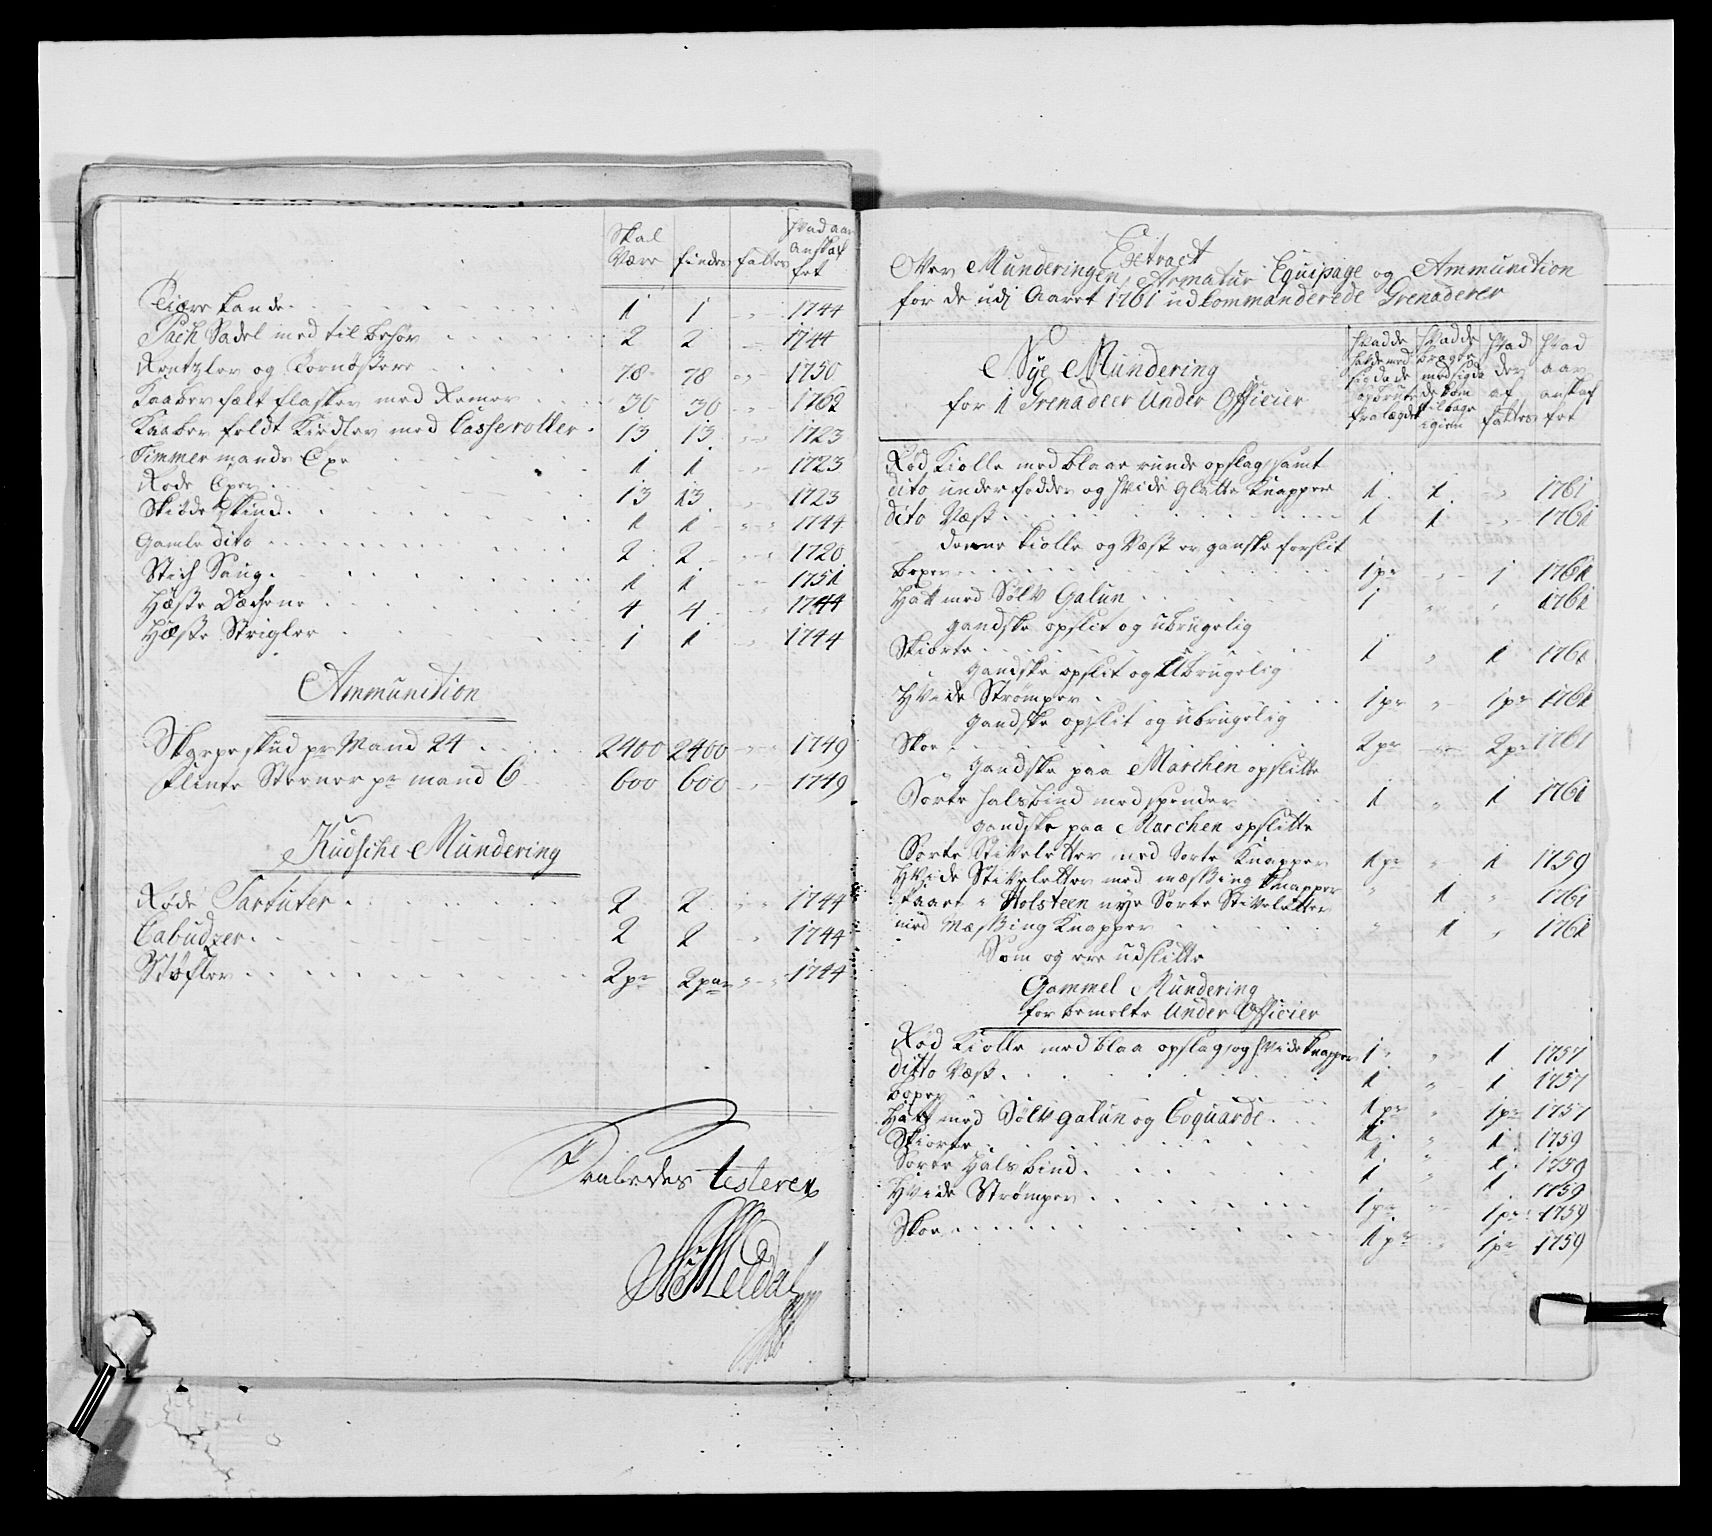 Skal Være findes fattes Hvad aar anskaffet
Tiære Kande 1 1 " 1744
Pach Sadel med tilbehør 2 2 " 1744
Rentzler og Tornøstere 78 78 " 1750
Kaaber fælt flasker med Remer 30 30 " 1762
Kaaber feldt Kiedler med Casseroller 13 13 " 1723
Timmermands Exe 1 1 " 1723
Rode Exer 13 13 " 1723
Skiødeskind 1 1 " 1744
Gamle dito 2 2 " 1720
Stich Saug 1 1 " 1751
Hæste Dæchene 4 4 " 1744
Hæste Strigler 1 1 " 1744
Ammunition
Skarpe skud pr Mand 24 2400 2400 " 1749
Flinte Steener pr mand 6 600 600 " 1749
Kudsche Mundering
Røde Surtuter 2 2 " 1744
Cabudzer 2 2 " 1744
Støfler 2 pr 2 par " 1744
testerer
Extract
Over Munderingen, Armatur Equipage og Ammunition
for de udj Aaret 1761 udkommanderede Grenaderer
Nÿe Mundering
for 1 Grenadeer Under Officier
Hvadde hafde med sig da de opbrøt fra lægdet
Hvadde bragte med sig da de kom tilbage igien
Hvad der af fattes
Hvad aar anskaffet
Rød Kiolle med blaae runde opslag, samt
dito under foeder og hvide Glatte Knapper 1 1 " 1761
dito Væst 1 1 " 1761
denne Kiolle og Væst er ganske forslit
Boxer 1 pr " 1 1761
Hat med Sølv Galun 1 " " 1761
gandske opslit og ubrugelig
Skiorte 1 " 1 1761
Gandske opslit og Ubrugelig
Hvide Strømper 1 pr " 1 pr 1761
Gandske opslit og ubrugelig
Skoe 2 pr " 2 pr 1761
Gandske paa Marchen opslitte
Sorte Halsbind med spender 1 " 1 1761
gandske paa Marchen opslitte
Sorte Stiveletter med Sorte Knapper 1 pr " 1 1759
Hvide Stiveletter med mæssing Knapper " 1 " 1761
Holsteen nye Sorte Stiveletter
med Mæssing Knapper " 1 " 1761
Som og ere udslitte
Gammel Mundering
for bemelte Under Officier
Rød Kiolle med blaa opslag, og hvide Knapper 1 " 1 1757
ditto Væst 1 " 1 1757
Boxer 1 pr " 1 pr 1757
Hatt med Sølv galun og Coquarde 1 " 1 1759
Skiorte 1 " 1 1759
Sorte Hals bind 1 " 1 1759
Hvide Strømper 1 pr " 1 pr 1759
Skoe 1 pr " 1 pr 1759